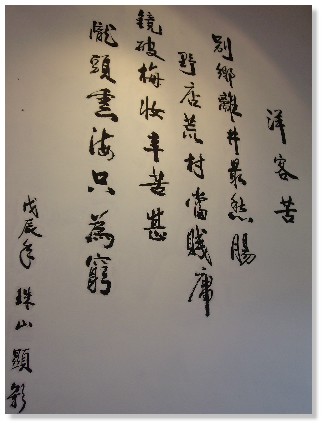 洋客苦
別鄉離井最愁腸
野店荒村當賤庸
鏡破梅妝辛苦甚
隴頭雲海只為窮
戊辰年珠山顯影